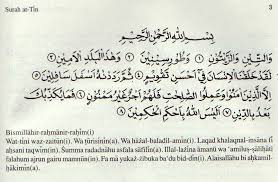 Surah at-Tin 3
بِسْمِ اللهِ الرَّحْمٰنِ الرَّحِيْمِ
وَالتِّيْنِ وَالزَّيْتُوْنِ ① وَطُوْرِ سِيْنِيْنَ ② وَهٰذَا الْبَلَدِ الْأَمِيْنِ ③
لَقَدْ خَلَقْنَا الْإِنْسَانَ فِيْ أَحْسَنِ تَقْوِيْمٍ ④ ثُمَّ رَدَدْنٰهُ أَسْفَلَ سَافِلِيْنَ ⑤
إِلَّا الَّذِيْنَ اٰمَنُوْا وَعَمِلُوا الصَّالِحَاتِ فَلَهُمْ أَجْرٌ غَيْرُ مَمْنُوْنٍ ⑥ فَمَا يُكَذِّبُكَ
بَعْدُ بِالدِّيْنِ ⑦ أَلَيْسَ اللهُ بِأَحْكَمِ الْحَاكِمِيْنَ ⑧
Bismillâhir-rahmânir-rahîm(i)
Wat-tîni waz-zaitûn(i). Wa tûrisînîn(a). Wa hâżal-baladil-amîn(i). Laqad khalaqnal-insâna fî
ahsani taqwîm(in). Summa radadnâhu asfala sâfilîn(a). Illal-lażîna âmanû wa 'amiluṣ-ṣâliḥâti
falahum ajrun gairu mamnûn(in). Fa mâ yukażżibuka ba'du bid-dîn(i). Alaisallâhu bi aḥkamil-
ḥâkimîn(a).